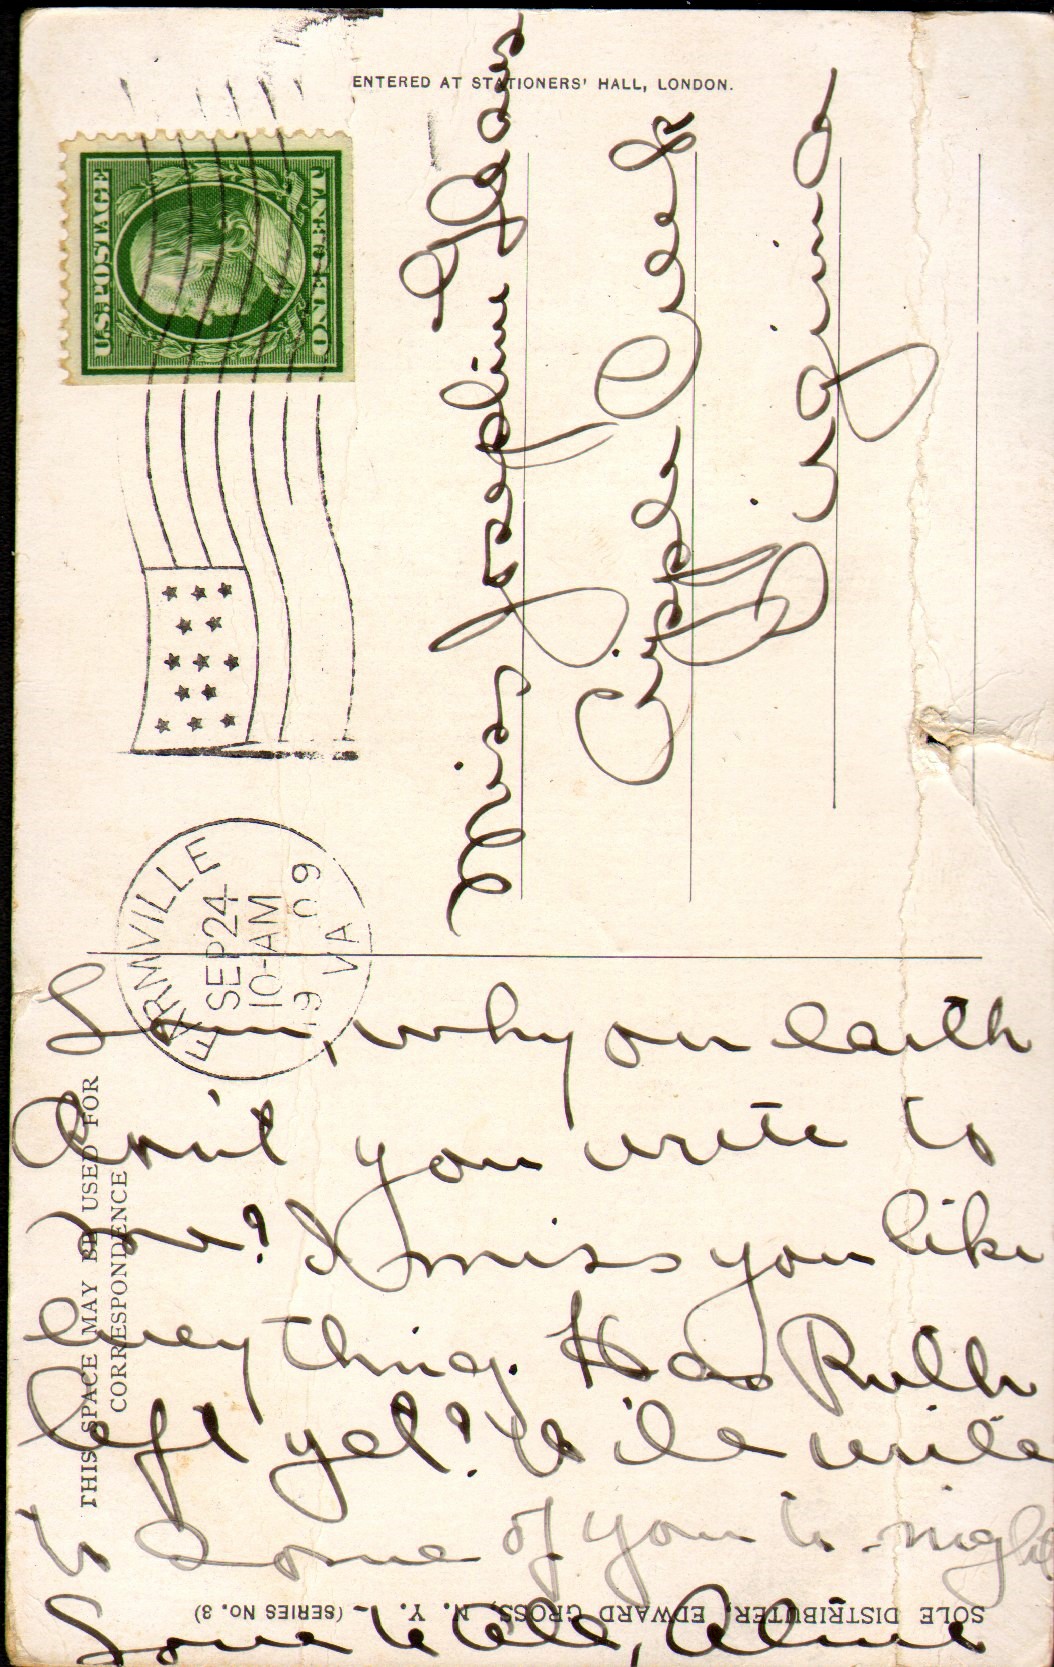 ENTERED AT STATIONERS' HALL, LONDON.
U.S. POSTAGE
ONE CENT
FARMVILLE
SEP 24
10-AM
19 09
VA
Miss Josephine
Cripple Creek
Virginia
THIS SPACE MAY BE USED FOR
CORRESPONDENCE
why on earth
don't you write to
me? I miss you like
every thing. Has Ruth
left yet? Wile write
to some of you to-night
Love to all,
SOLE DISTRIBUTER, EDWARD GROSS, N. Y. – (SERIES NO. 3)